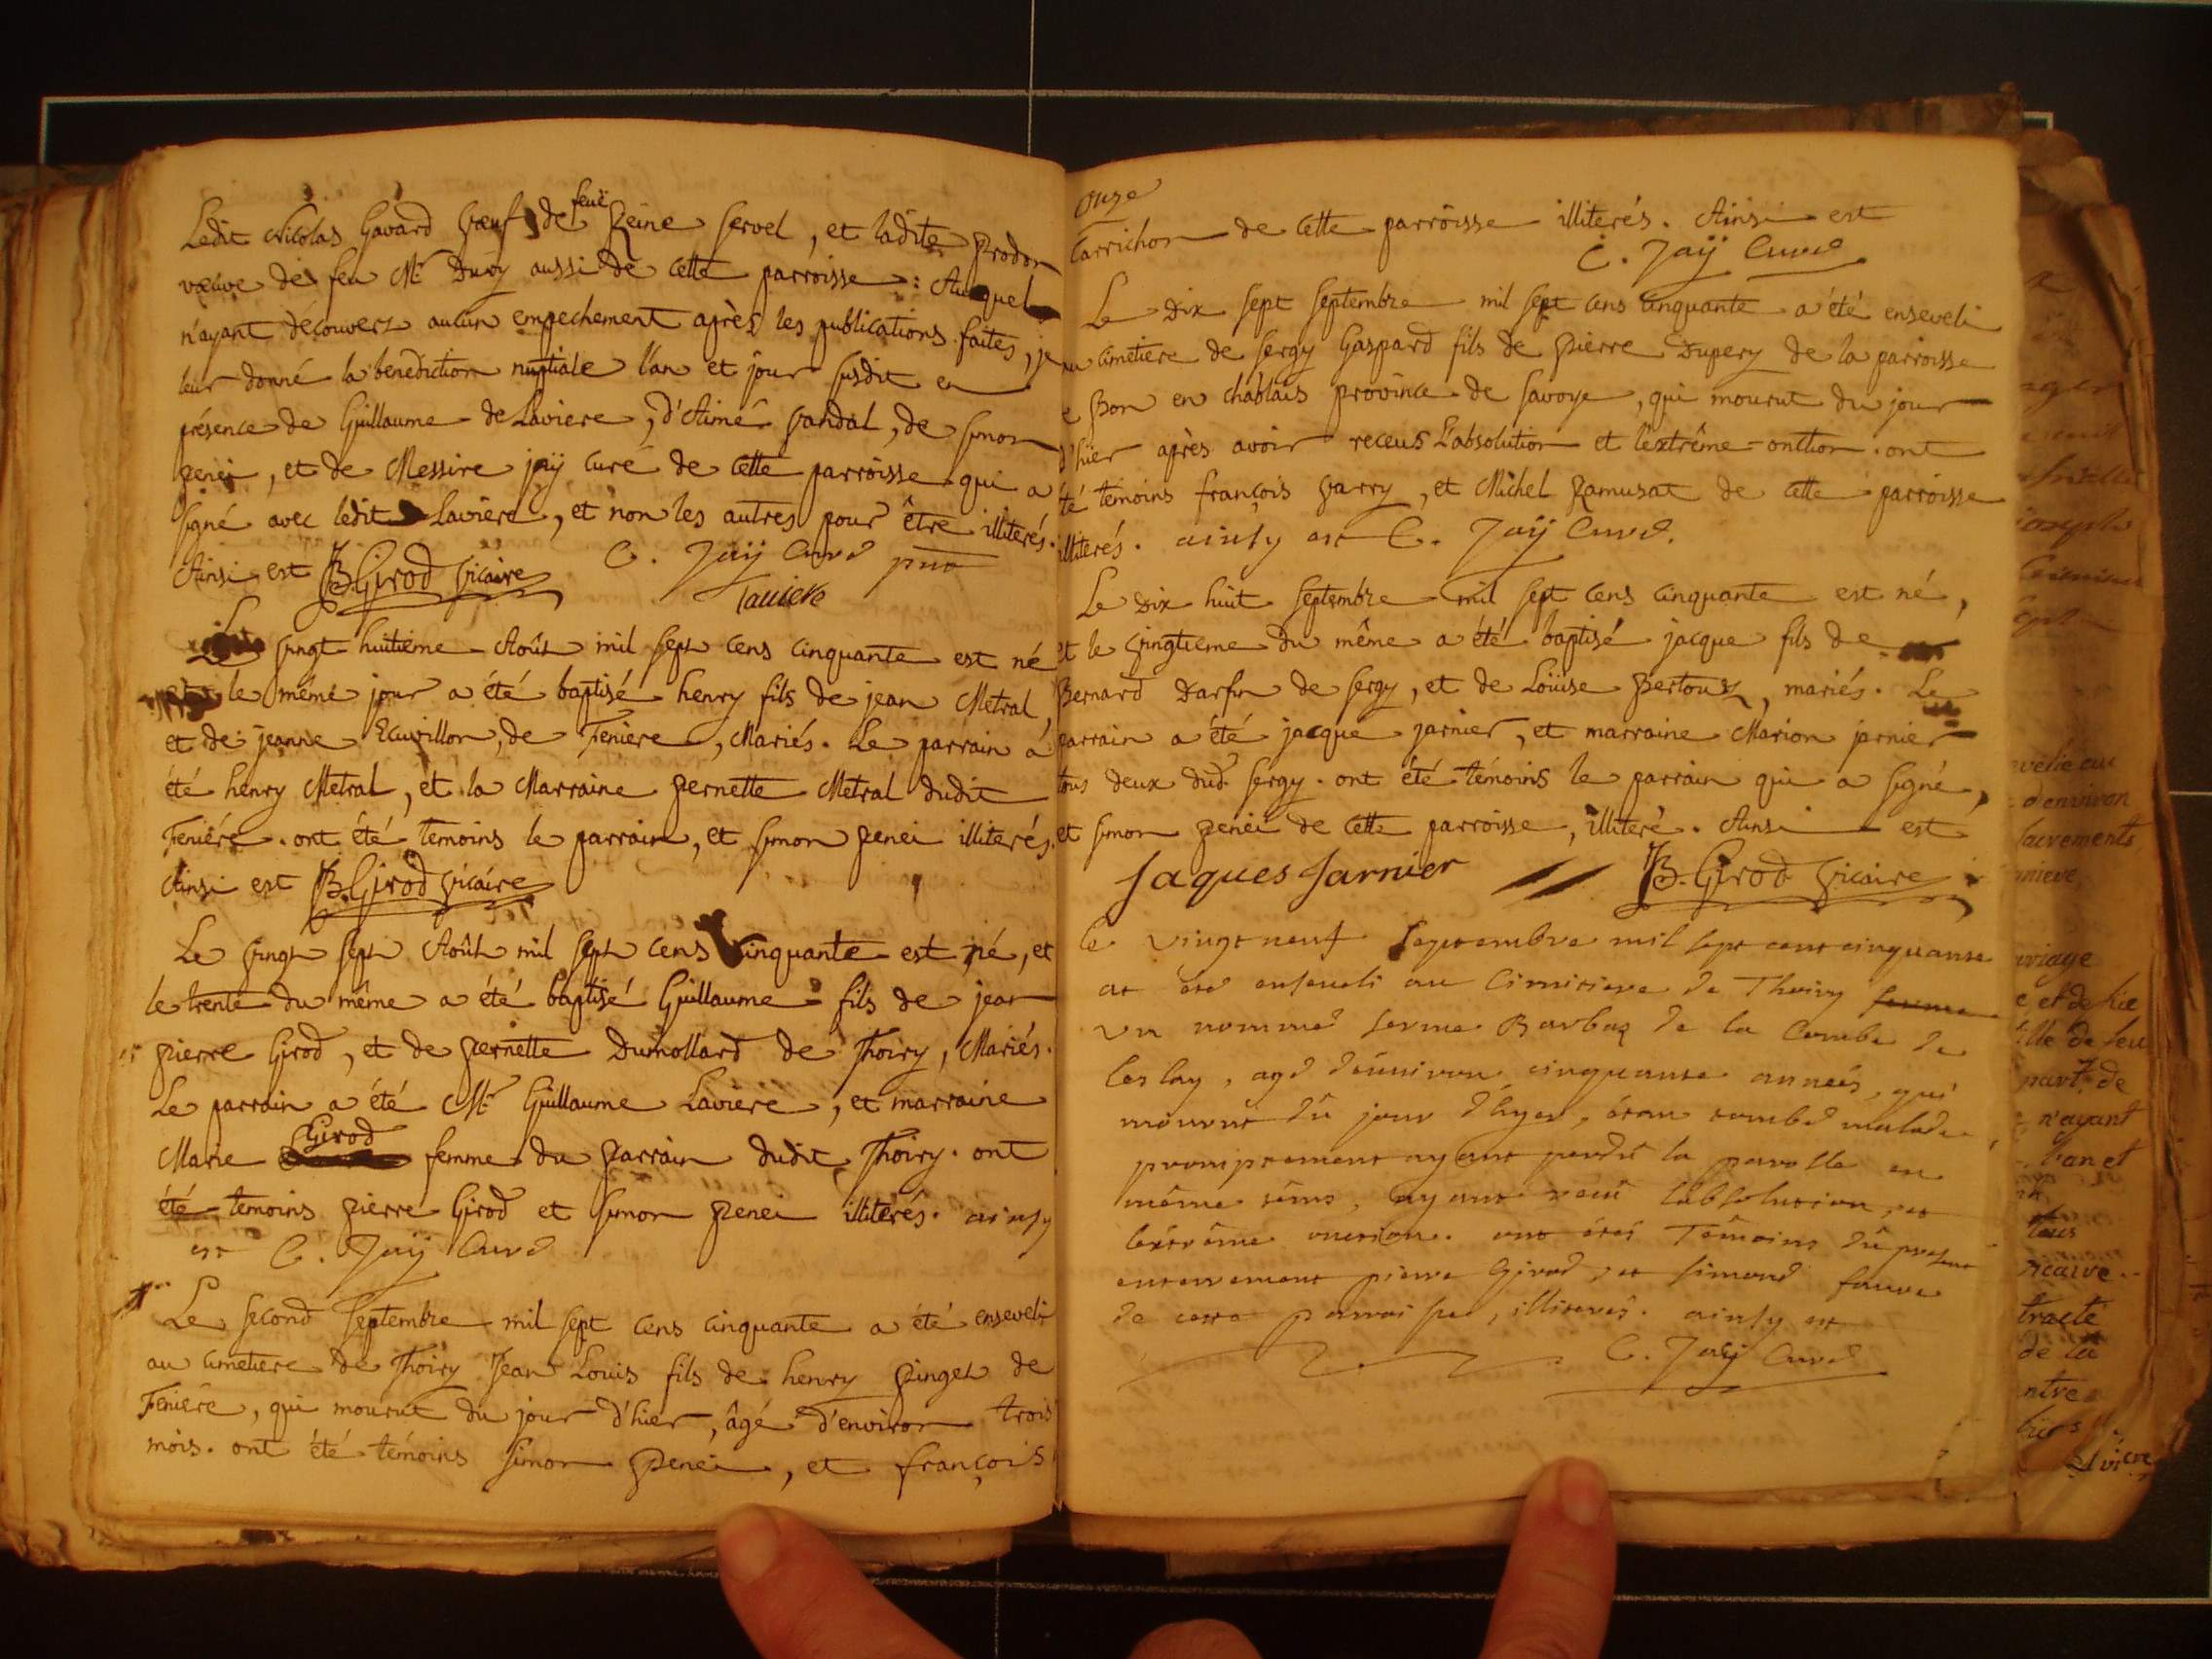 Ledit Nicolas Gavard vœuf de feuë Reine Servel, et ladite Prodon
vœuve de feu Mr Duvy aussi de cette parroisse : Auquel
n'ayant découvert aucun empechement après les publications faites, je
leur donné la bénédiction nuptiale l'an et jour susdit en
présence de Guillaume de Laviere, d'Aimé Vandal, de Simon
penei, et de Messire jaÿ curé de cette parroisse qui a
signé avec ledit Laviere, et non les autres pour être illiterés.
Ainsi est JB. Girod Vicaire C. Jaÿ Curé
Laviere
Le vingt huitième Août mil sept cens cinquante est né
et le même jour a été baptisé henry fils de jean Metral,
et de jeanne Ecuvillon, de Feniere, Mariés. Le parrain a
été henry Metral, et la Marraine pernette Metral dudit
Feniére. ont été temoins le parrain, et Simon penei illiterés.
Ainsi est JB. Girod Vicaire
Le vingt sept Août mil sept cens cinquante est né, et
le trente du même a été baptisé Guillaume fils de jean
pierre Girod, et de pernette Dumollard de Thoiry, Mariés.
Le parrain a été Mr Guillaume Laviere, et marraine
Marie Girod femme du parrain dudit Thoiry. ont
été temoins pierre Girod et Simon penei illiterés. ainsy
est C. Jaÿ Curé
Le second Septembre mil sept cens cinquante a été enseveli
au cimetiere de Thoiry Jean Louis fils de henry pinget de
Feniere, qui mourut du jour d'hier, âgé d'environ trois
mois. ont été témoins Simon Penei, et françois
onze
Carrichon de cette parroisse illiterés. Ainsi est
C. Jaÿ Curé
Le dix sept Septembre mil sept cens cinquante a été enseveli
au cimetiere de Sergy Gaspard fils de pierre Dupery de la parroisse
e Bon en chablais province de Savoye, qui mourut du jour
d'hier après avoir receus l'absolution et l'extrême-onction. ont
té témoins françois Varry, et Michel Ramusat de cette parroisse
illiterés. ainsy est C. Jaÿ Curé.
Le dix huit Septembre mil sept cens cinquante est né,
et le vingtieme du même a été baptisé jacque fils de
Bernard Darfin de Sergy, et de Loüise Bertouz, mariés. Le
parrain a été jacque jarnier, et marraine Marion jarnier
tous deux dud. Sergy. ont été témoins le parrain qui a signé,
et Simon penei de cette parroisse, illiteré. Ainsi est
Jaques Jarnier JB. Girod Vicaire
le vingt neuf septembre mil sept cent cinquante
at eté enseueli au Cimitiere de Thoiry
un nommé ferme Barbaz de la Combe de
Leslay, agé dénviron cinquante anneés, qui
mourut dû jour d'hyer, étan tombé malade
promptement ayant perdû la parolle en
même têms, ayant receû l'absolution, et
l'éxtrême onction. ont étéi Témoins dû present
enterrement pierre Girod, et Simond faure
de cette parroisse, illiterés. ainsy est
C. Jaÿ Curé